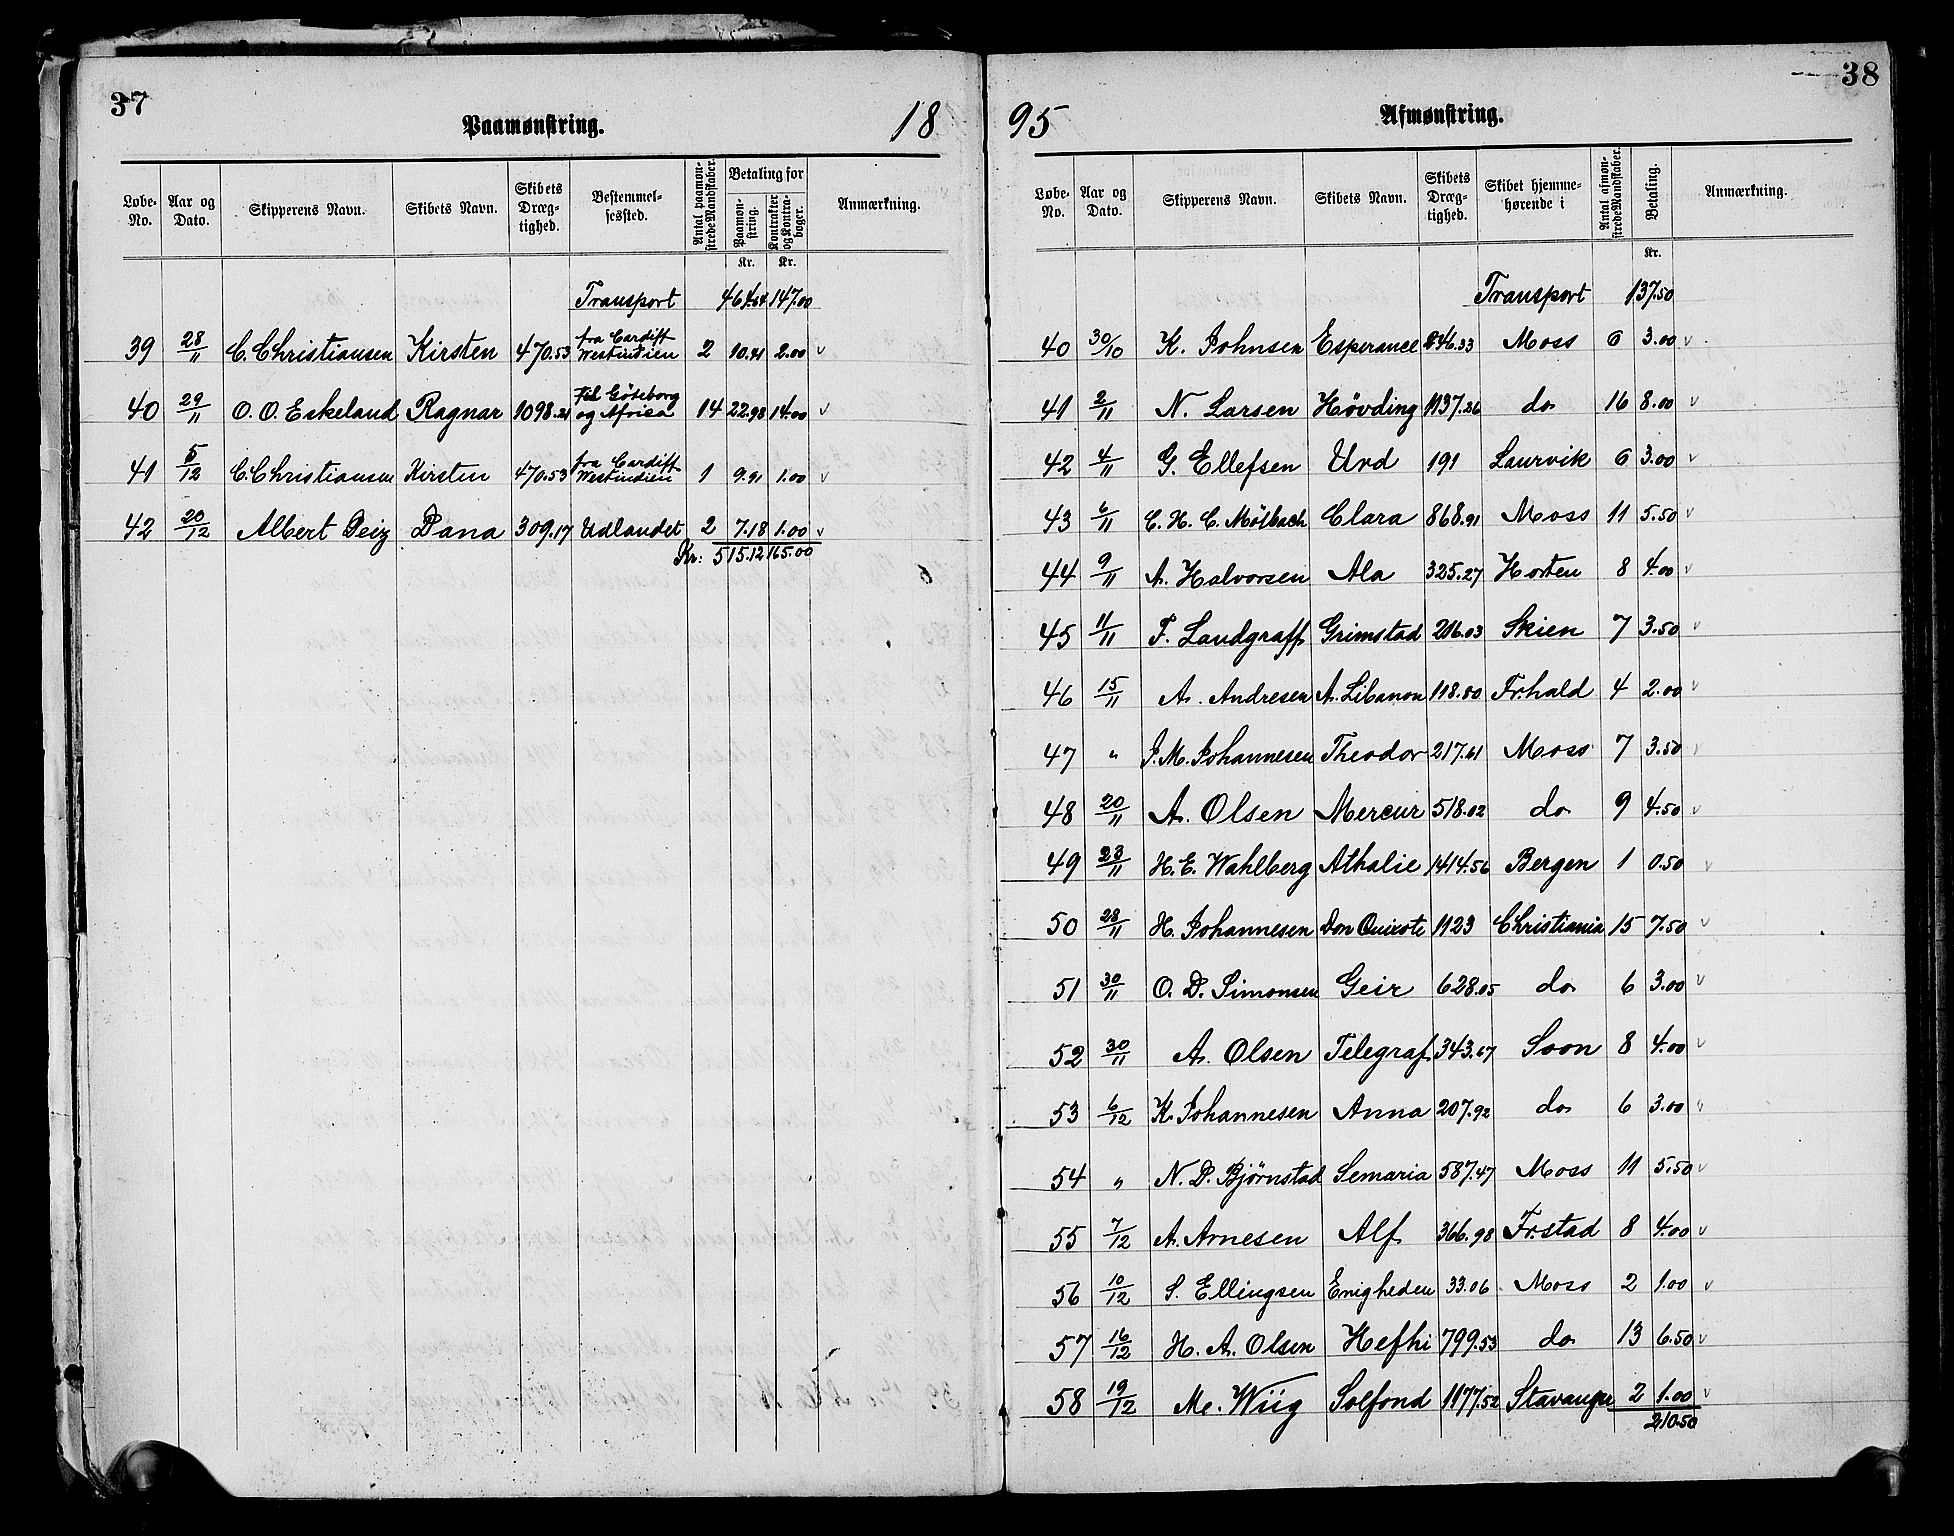 37
Paamønstring.
18
Løbe-No. Aar og Dato. Skipperens Navn. Skibets Navn. Skibets Dræg-tighed. Bestemmel-sessted. Antal paamøn-strede Mandskaber. Betaling for Paamøn-string. Kontrakter og Kontra-bøger. Anmærkning.
Kr. Kr.
Transport 464.54 147.00
39 28/11 C. Christiansen Kirsten 470.53 fra Cardiff Westindien 2 10.41 2.00 v
40 29/11 O. O. Eskeland Ragnar 1098.21 Til Göteborg og Africa 14 22.98 14.00 v
41 5/12 C. Christiansen Kirsten 470.53 fra Cardiff Westindien 1 9.91 1.00 v
42 20/12 Albert Deiz Dana 309.17 Udlandet 2 7.18 1.00 v
Kr: 515.12 165.00
38
95
Afmønstring.
Løbe-No. Aar og Dato. Skipperens Navn. Skibets Navn. Skibets Dræg-tighed. Skibet hjemme-hørende i Antal afmøn-strede Mandskaber. Betaling. Anmærkning.
Kr.
Transport 137.50
40 30/10 K. Johnsen Esperance 46.33 Moss 6 3.00 v
41 2/11 N. Larsen Høvding 1137.26 do 16 8.00 v
42 4/11 G. Ellefsen Urd 191 Laurvik 6 3.00 v
43 6/11 C. H. C. Mølbach Clara 868.91 Moss 11 5.50 v
44 9/11 A. Halvorsen Ala 325.27 Horten 8 4.00 v
45 11/11 F. Landgraff Grimstad 216.03 Skien 7 3.50 v
46 15/11 A. Andresen A. Libanon 118.80 Frhald 4 2.00 v
47 " J. M. Johannesen Theodor 217.61 Moss 7 3.50 v
48 20/11 A. Olsen Mercur 518.02 do 9 4.50 v
49 23/11 H. E. Wahlberg Athalie 1414.56 Bergen 1 0.50 v
50 28/11 H. Johannesen Don Quixote 1123 Christiania 15 7.50 v
51 30/11 O. D. Simonsen Geir 628.05 do 6 3.00 v
52 30/11 A. Olsen Telegraf 343.67 Soon 8 4.00 v
53 6/12 K. Johannesen Anna 207.92 do 6 3.00 v
54 " N. D. Bjørnstad Semaria 587.47 Moss 11 5.50 v
55 7/12 A. Arnesen Alf 366.98 Fr.stad 8 4.00 v
56 10/12 S. Ellingsen Enigheden 33.06 Moss 2 1.00 v
57 16/12 H. A. Olsen Hefhi 799.53 do 13 6.50 v
58 19/12 M. Wiig Solfond 1177.52 Stavanger 2 1.00 v
210.50